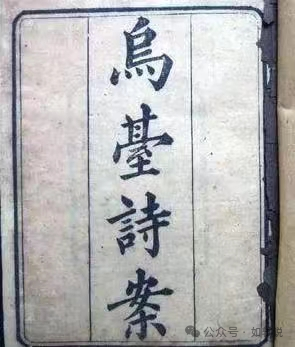 烏臺詩案
公众号·如